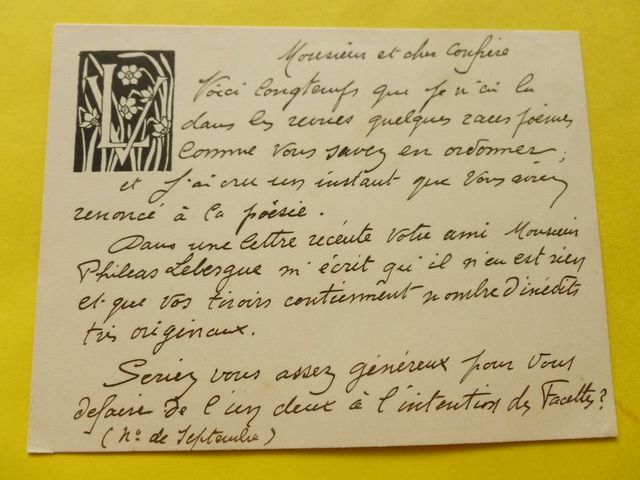 Monsieur et cher Confrère
LV
Voici longtemps que je n'ai lu
dans les revues quelques rares poèmes
comme vous savez en ordonner,
et j'ai cru un instant que vous aviez
renoncé à la poésie.
Dans une lettre récente votre ami Monsieur
Phileas Lebesgue m'écrit qu'il n'en est rien
et que vos tiroirs contiennent nombre d'inédits
très originaux.
Seriez vous assez généreux pour vous
défaire de l'un deux à l'intention des Facettes?
(No de Septembre)